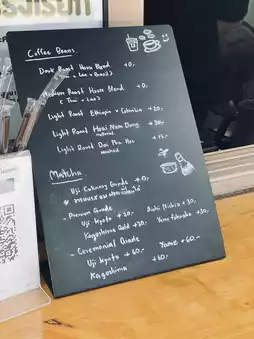 Coffee Beans.
Dark Roast House Blend +0.
(Thai + Lao + Brazil)
Medium Roast House Blend +0.
(Thai + Lao)
Light Roast Ethiopia + Colombia +20.
Light Roast Huai Nam Dang +30.
Light Roast Doi Pha Hee +15.
washed
Matcha
Uji Culinary Grade +0.
- Premium Grade
Uji Kyoto +20.
Aichi Nishio +30.
Kagoshima Gold +30.
Yame Fukuoka +30.
- Ceremonial Grade
Uji Kyoto +60.-
Yame +60.-
Kagoshima +60.-